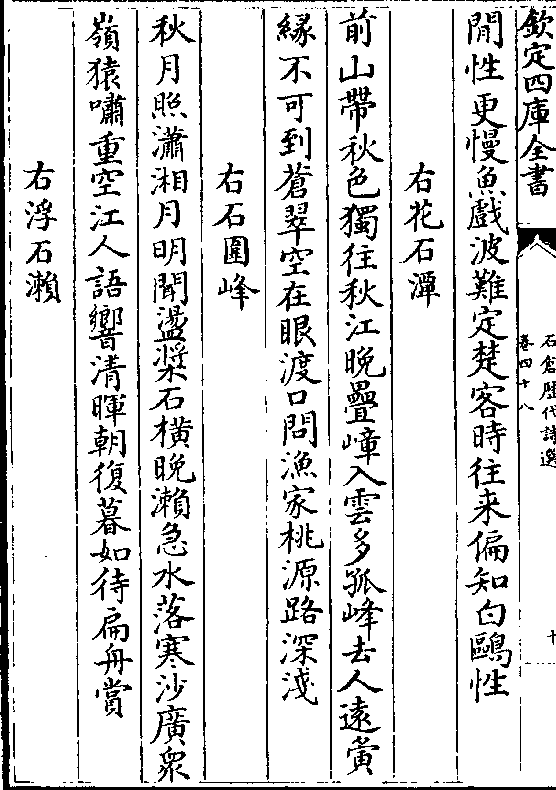 欽定四庫全書
石倉歷代詩選
卷四十八
十
閒性更慢魚戲波難定楚客時往来偏知白鷗性
右花石潭
前山帶秋色獨往秋江晚疊嶂入雲多孤峰去人遠夤
緣不可到蒼翠空在眼渡口問漁家桃源路深淺
右石圍峰
秋月照瀟湘月明聞盪槳石橫晚瀨急水落寒沙廣衆
嶺猿嘯重空江人語響清暉朝復暮如待扁舟賞
右浮石瀨